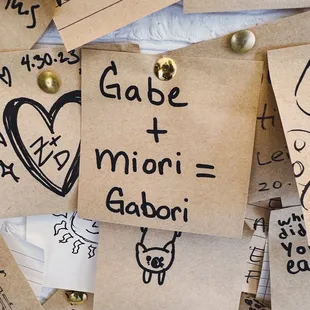 4.30.23
Z+D
Gabe
+
miori =
Gabori
Le
20.
wh
did
You
ea